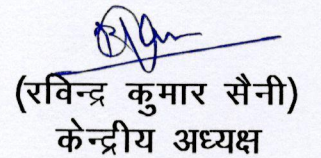 (रविन्द्र कुमार सैनी)
केन्द्रीय अध्यक्ष